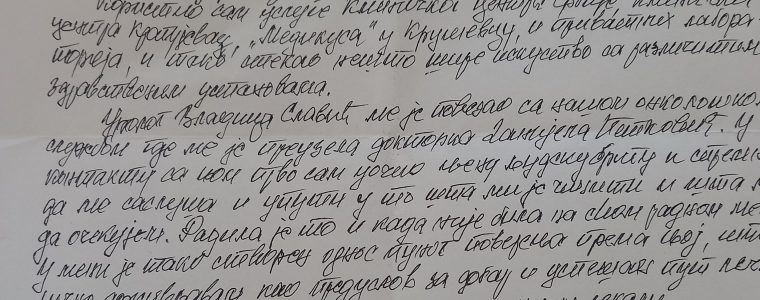 Користио сам услуге Клиничког центра Србије, Клиничког
центра Крагујевац, „Медикуса“ у Крушевцу, и приватних лабора-
торија, и тако стекао нешто шире искуство са различитим
здравственим установама.
Уролог Владица Славић ме је повезао са нашом онколошком
службом где ме је преузела докторка Данијела Петковић. У
контакту са њом прво сам уочио њену људску бригу и
да ме саслуша и упути у то шта ми је чинити и шта
да очекујем. Радила је то и када није била на свом радном
У мени је тако створен однос пуног поверења према њој,
као предуслов за добар и успешан пут